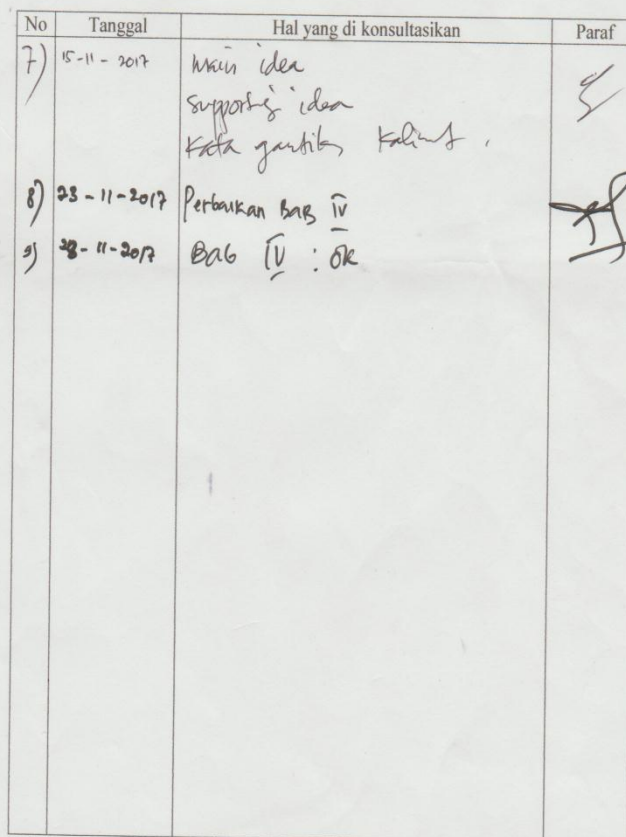 No Tanggal Hal yang di konsultasikan Paraf
7) 15-11-2017 main idea
supporting idea
kata ganti
8) 23-11-2017 Perbaikan BAB IV
9) 28-11-2017 BAB IV : Ok